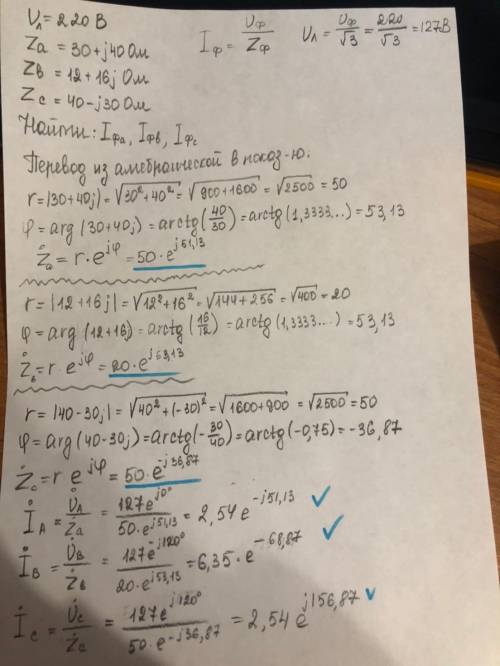 Uл = 220 В
Iф = Uф/Zф Uл = Uф/√3 = 220/√3 = 127В
Za = 30+j40 Ом
Zв = 12+16j Ом
Zc = 40-j30 Ом
Найти: Iфа, Iфв, Iфс
Перевод из алгебраической в показ-ю:
r = |30+40j| = √30²+40² = √900+1600 = √2500 = 50
φ = arg (30+40j) = arctg(40/30) = arctg(1,3333...) = 53,13
Żа = r·e^jφ = 50·e^j51,13
r = |12+16j| = √12²+16² = √144+256 = √400 = 20
φ = arg (12+16j) = arctg(16/12) = arctg(1,3333...) = 53,13
Żв = r e^jφ = 20·e^j53,13
r = |40-30j| = √40²+(-30)² = √1600+900 = √2500 = 50
φ = arg (40-30j) = arctg(-30/40) = arctg(-0,75) = -36,87
Żc = r e^jφ = 50·e^-j36,87
İA = U̇A/Ża = 127e^j0°/50·e^j51,13 = 2,54e^-j51,13
İB = U̇B/Żв = 127e^-j120°/20·e^j53,13 = 6,35·e^-68,87
İc = U̇c/Żc = 127e^j120°/50·e^-j36,87 = 2,54e^j156,87